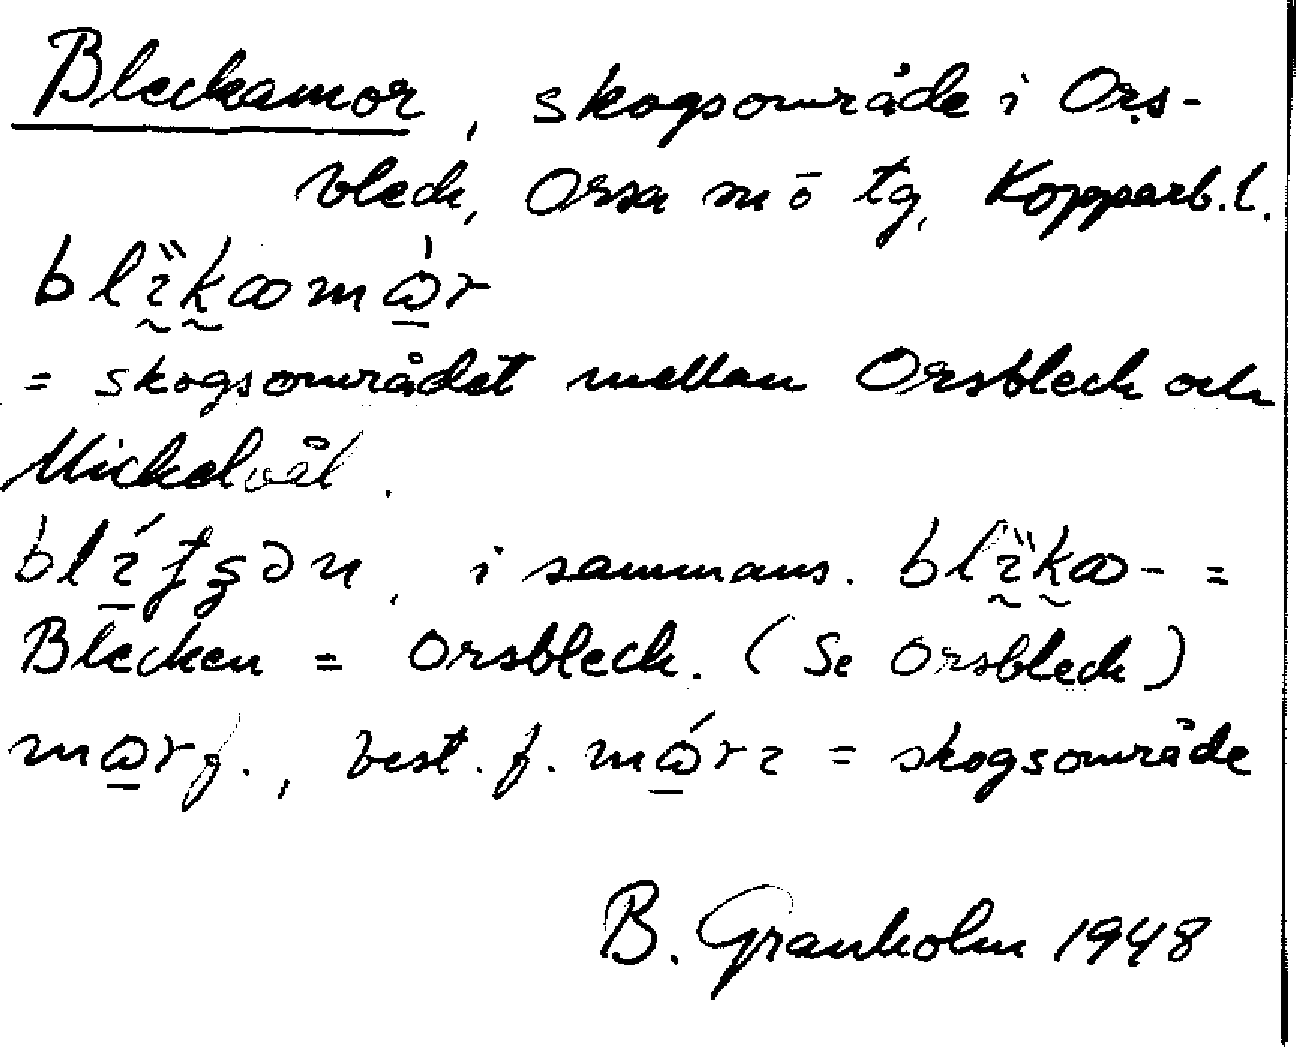 Bleckamor, skogsområde i Ors-
bleck, Orsa sn o tg, Kopparb. l.
= skogsområdet mellan Orsbleck och
Mickelvål.
i sammans.
Blecken = Orsbleck. (Se Orsbleck)
f., best. f. = skogsområde
B. Granholm 1948